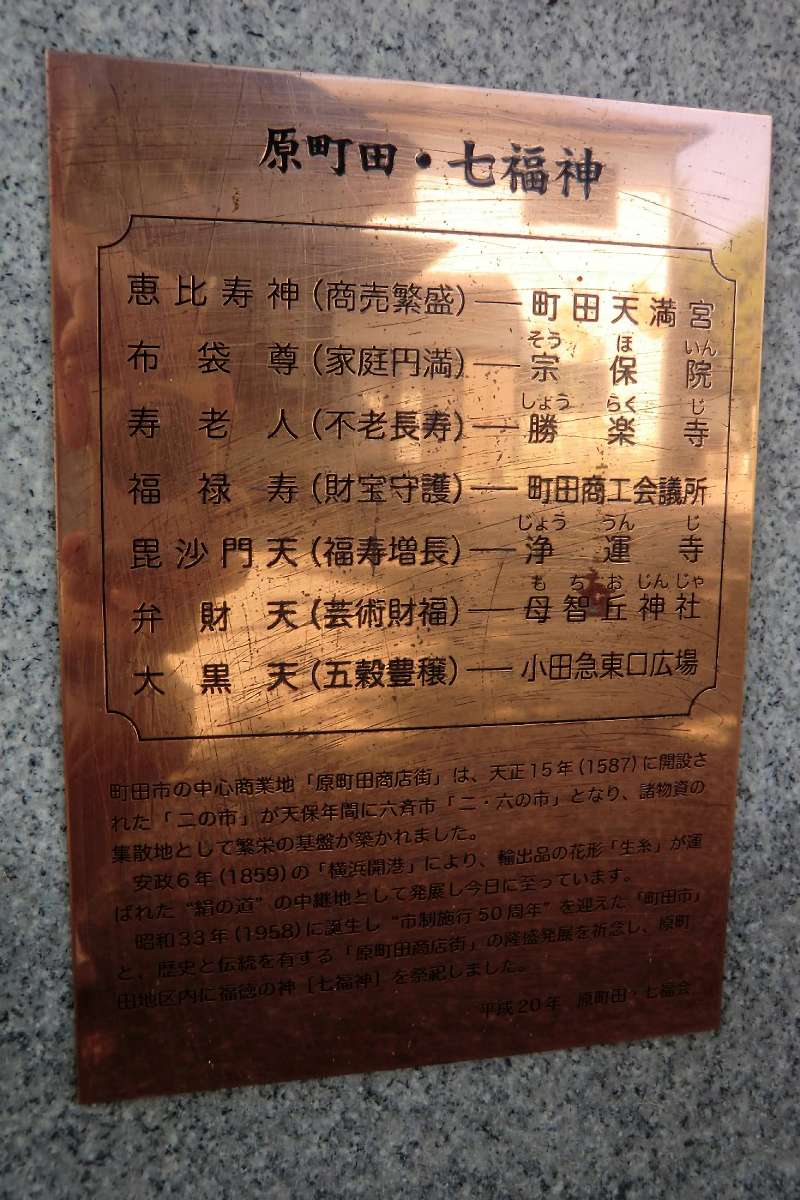 原町田・七福神
恵比寿神(商売繁盛)―町田天満宮
そう ほ いん
布袋尊(家庭円満)―宗保院
しょう らく じ
寿老人(不老長寿)―勝楽寺
福禄寿(財宝守護)―町田商工会議所
じょう うん じ
毘沙門天(福寿増長)―浄運寺
も ち お じんじゃ
弁財天(芸術財福)―母智丘神社
大黒天(五穀豊穣)―小田急東口広場
町田市の中心商業地「原町田商店街」は、天正15年(1587)に開設さ
れた「二の市」が天保年間に六斉市「二・六の市」となり、諸物資の
集散地として繁栄の基盤が築かれました。
安政6年(1859)の「横浜開港」により、輸出品の花形「生糸」が運
ばれた“絹の道”の中継地として発展し今日に至っています。
昭和33年(1958)に誕生し“市制施行50周年”を迎えた「町田市」
と、歴史と伝統を有する「原町田商店街」の隆盛発展を祈念し、原町
田地区内に福徳の神[七福神]を祭祀しました。
平成20年 原町田・七福会